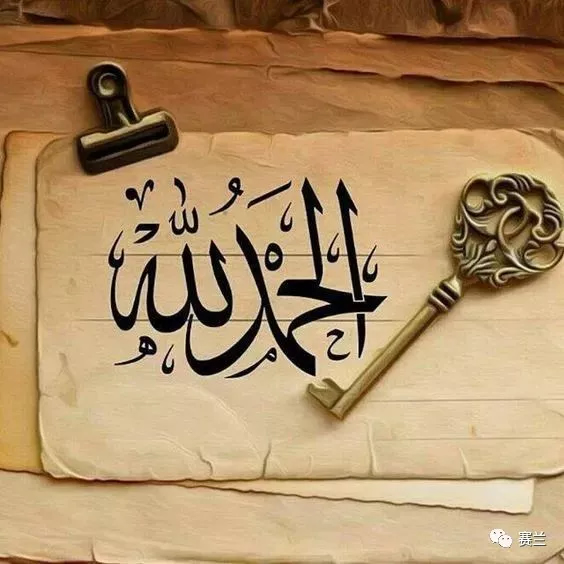 الحمد لله
赛兰